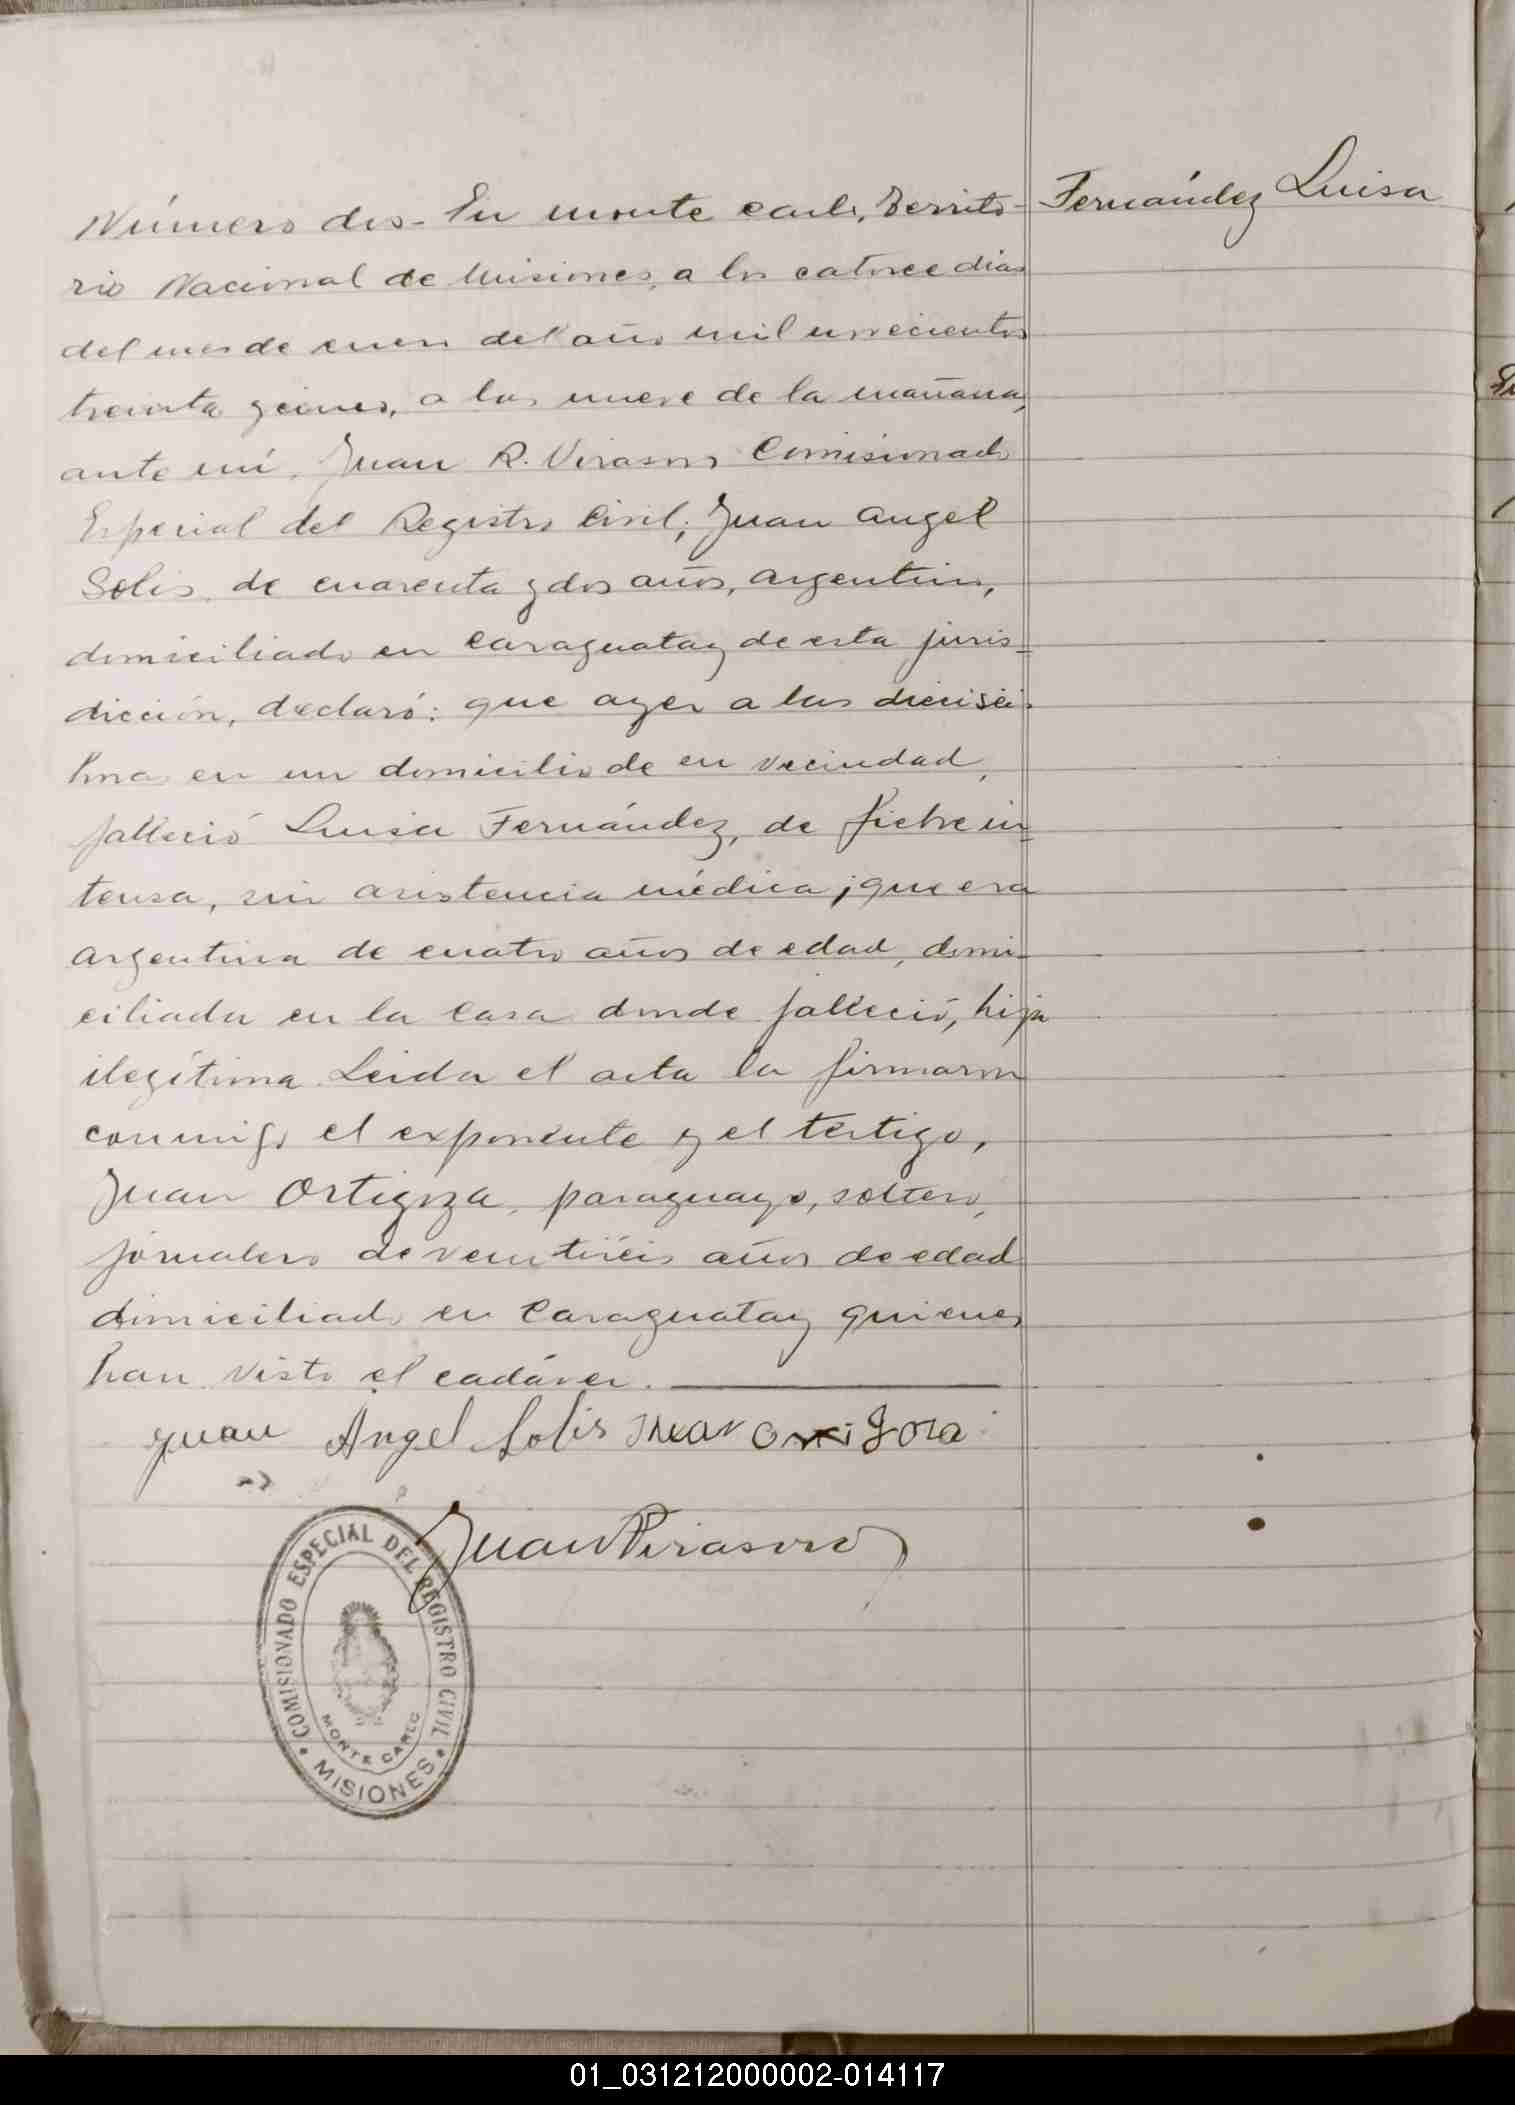 Número dos - En monte carlo, Territo-
rio Nacional de Misiones, a los catorce dias
del mes de enero del año mil novecientos
treinta y cinco, a las nueve de la mañana,
ante mí, Juan R. Virasoro Comisionado
Especial del Registro Civil; Juan Angel
Solis, de cuarenta y dos años, argentino,
domiciliado en Caraguatay de esta juris-
dicción, declaró: que ayer a las dieciséis
horas en un domicilio de en vecindad,
falleció Luisa Fernández, de fiebre in-
tensa, sin asistencia médica; que era
argentina de cuatro años de edad, domi-
ciliada en la casa donde falleció, hija
ilegítima. Leida el acta la firmaron
conmigo el exponente y el testigo,
Juan Ortigoza, paraguayo, soltero,
jornalero de ventiséis años de edad
domiciliado en Caraguatay quienes
han visto el cadáver.
Juan Angel Solis Juan Ortigoza
Juan Virasoro
COMISIONADO ESPECIAL DEL REGISTRO CIVIL
MONTE CARLO
MISIONES
Fernández Luisa
01_031212000002-014117